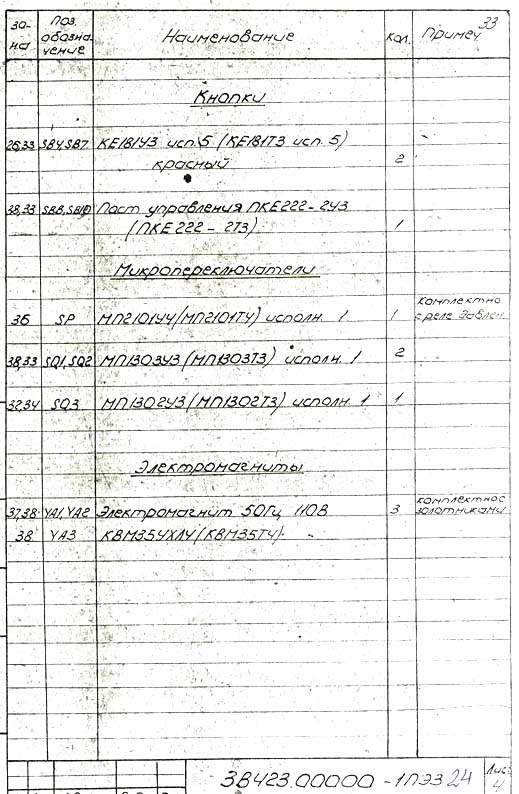 33
Зона Поз. обозначение Наименование Кол. Примеч
Кнопки
26,33 SB4, SB7 КЕ181У3 исп. 5 (КЕ181Т3 исп. 5)
красный 2
38,33 SB8, SB10 Пост управления ПКЕ222-2У3
(ПКЕ222-2Т3) 1
Микропереключатели
комплектно
36 SP МП2101У4 (МП2101Т4) исполн. 1 1 с реле давлен.
38,33 SQ1, SQ2 МП1303У3 (МП1303Т3) исполн. 1 2
32,34 SQ3 МП1302У3 (МП1302Т3) исполн 1 1
Электромагниты
комплектно с
37,38 YA1, YA2 Электромагнит 50Гц 110В 3 золотниками
38 YA3 КВМ35УХЛ4 (КВМ35Т4).
3В423.00000-1ПЭ3 24 Лист
4